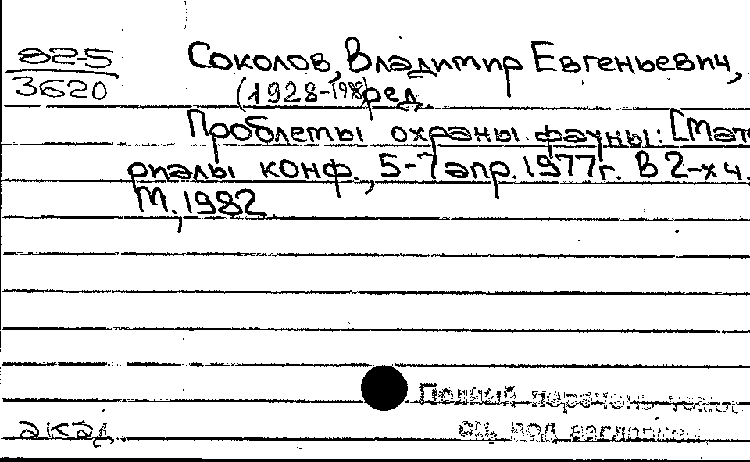 82-5
3620
Соколов, Владимир Евгеньевич,
(1928-1998) ред.
Проблемы охраны фауны: [Мат
риалы конф., 5-7 апр. 1977г. В 2-х ч.
М., 1982
Полный перечень
см. под заглавием
акад.